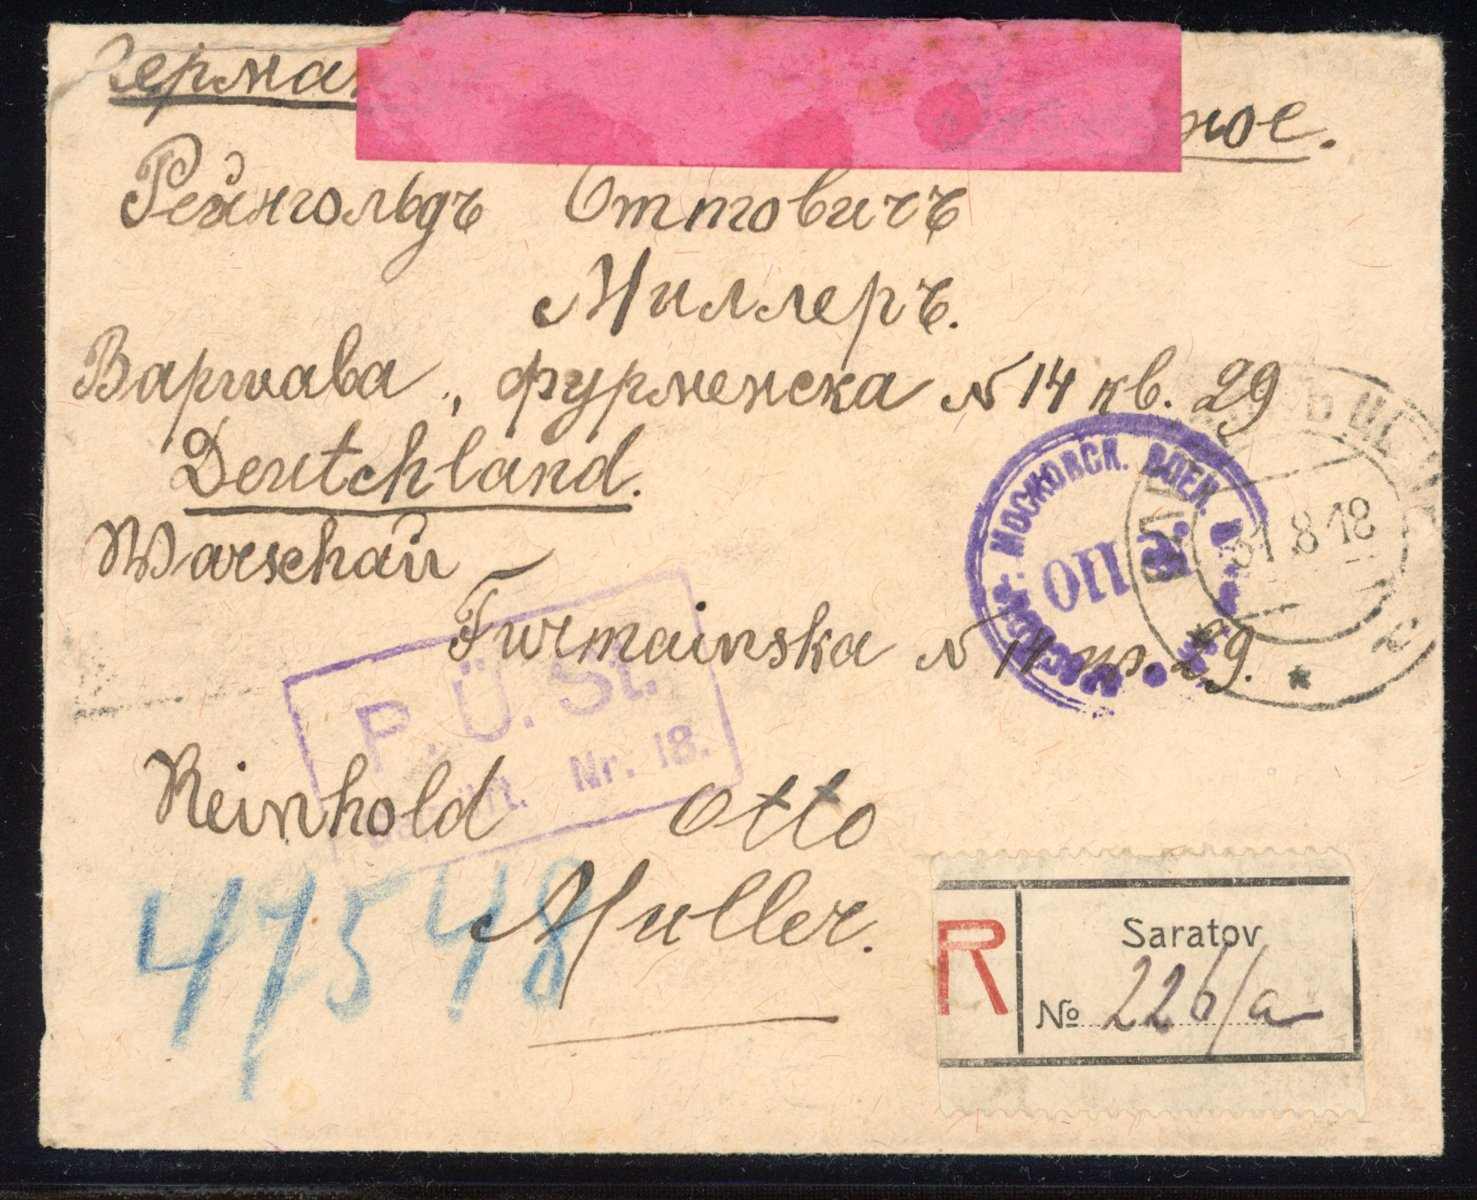 Герма
ное.
Рейнгольдъ Оттовичъ
Миллеръ.
Варшава, фурменска № 14 кв. 29
Deutchland.
Warschau
Furmainska № 14 кв. 29.
Reinhold Otto
Muller.
МОСКОВСК. ВОЕН.
110
31 8 18
P.Ü.St.
Nr. 18.
47548
R
Saratov
№ 226/a